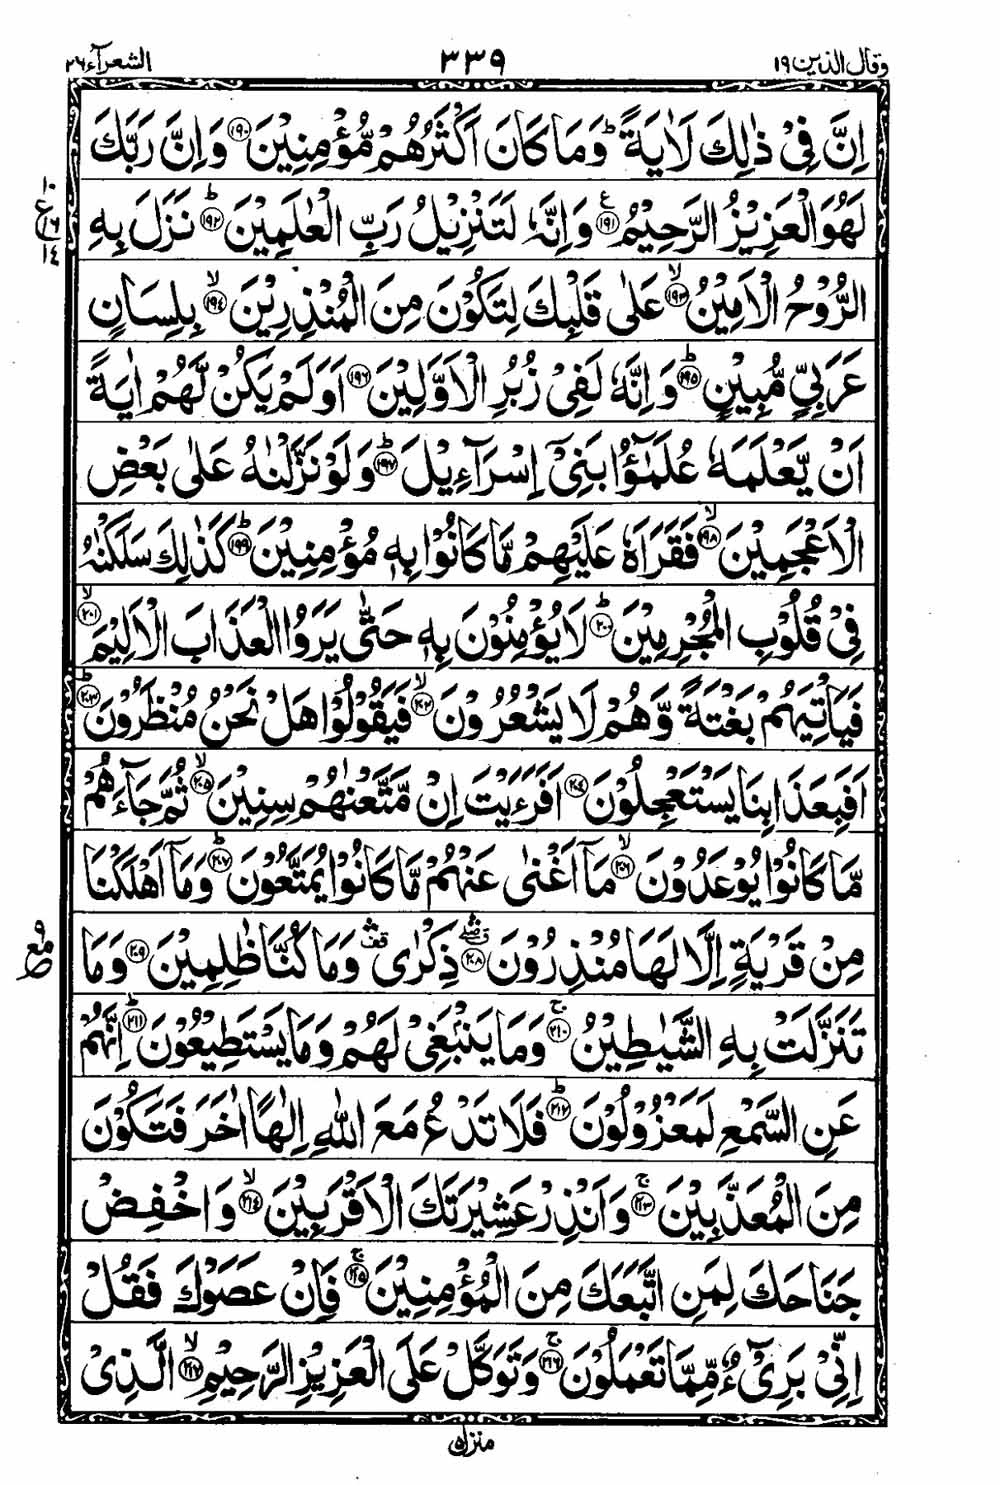 وقال الذین ۱۹ ۳۳۹ الشعرآء ۲۶
اِنَّ فِیْ ذٰلِكَ لَاٰیَةً ؕ وَمَا كَانَ اَكْثَرُهُمْ مُّؤْمِنِیْنَ ﴿۱۹۰﴾ وَاِنَّ رَبَّكَ
لَهُوَ الْعَزِیْزُ الرَّحِیْمُ ﴿۱۹۱﴾ ع وَاِنَّهٗ لَتَنْزِیْلُ رَبِّ الْعٰلَمِیْنَ ﴿۱۹۲﴾ؕ نَزَلَ بِهِ
۱۰
ع
۱۶
۱۴
الرُّوْحُ الْاَمِیْنُ ﴿۱۹۳﴾ۙ عَلٰی قَلْبِكَ لِتَكُوْنَ مِنَ الْمُنْذِرِیْنَ ﴿۱۹۴﴾ۙ بِلِسَانٍ
عَرَبِیٍّ مُّبِیْنٍ ﴿۱۹۵﴾ؕ وَاِنَّهٗ لَفِیْ زُبُرِ الْاَوَّلِیْنَ ﴿۱۹۶﴾ اَوَلَمْ یَكُنْ لَّهُمْ اٰیَةً
اَنْ یَّعْلَمَهٗ عُلَمٰٓؤُا بَنِیْۤ اِسْرَآءِیْلَ ﴿۱۹۷﴾ؕ وَلَوْ نَزَّلْنٰهُ عَلٰی بَعْضِ
الْاَعْجَمِیْنَ ﴿۱۹۸﴾ۙ فَقَرَاَهٗ عَلَیْهِمْ مَّا كَانُوْا بِهٖ مُؤْمِنِیْنَ ﴿۱۹۹﴾ؕ كَذٰلِكَ سَلَكْنٰهُ
فِیْ قُلُوْبِ الْمُجْرِمِیْنَ ﴿۲۰۰﴾ؕ لَا یُؤْمِنُوْنَ بِهٖ حَتّٰی یَرَوُا الْعَذَابَ الْاَلِیْمَ ﴿۲۰۱﴾ۙ
فَیَاْتِیَهُمْ بَغْتَةً وَّهُمْ لَا یَشْعُرُوْنَ ﴿۲۰۲﴾ۙ فَیَقُوْلُوْا هَلْ نَحْنُ مُنْظَرُوْنَ ﴿۲۰۳﴾ؕ
اَفَبِعَذَابِنَا یَسْتَعْجِلُوْنَ ﴿۲۰۴﴾ اَفَرَءَیْتَ اِنْ مَّتَّعْنٰهُمْ سِنِیْنَ ﴿۲۰۵﴾ۙ ثُمَّ جَآءَهُمْ
مَّا كَانُوْا یُوْعَدُوْنَ ﴿۲۰۶﴾ۙ مَاۤ اَغْنٰی عَنْهُمْ مَّا كَانُوْا یُمَتَّعُوْنَ ﴿۲۰۷﴾ؕ وَمَاۤ اَهْلَكْنَا
مِنْ قَرْیَةٍ اِلَّا لَهَا مُنْذِرُوْنَ ﴿۲۰۸﴾ ذِكْرٰی وَمَا كُنَّا ظٰلِمِیْنَ ﴿۲۰۹﴾ وَمَا
تَنَزَّلَتْ بِهِ الشَّیٰطِیْنُ ﴿۲۱۰﴾ۚ وَمَا یَنْۢبَغِیْ لَهُمْ وَمَا یَسْتَطِیْعُوْنَ ﴿۲۱۱﴾ؕ اِنَّهُمْ
عَنِ السَّمْعِ لَمَعْزُوْلُوْنَ ﴿۲۱۲﴾ؕ فَلَا تَدْعُ مَعَ اللّٰهِ اِلٰهًا اٰخَرَ فَتَكُوْنَ
مِنَ الْمُعَذَّبِیْنَ ﴿۲۱۳﴾ۚ وَاَنْذِرْ عَشِیْرَتَكَ الْاَقْرَبِیْنَ ﴿۲۱۴﴾ۙ وَاخْفِضْ
جَنَاحَكَ لِمَنِ اتَّبَعَكَ مِنَ الْمُؤْمِنِیْنَ ﴿۲۱۵﴾ۚ فَاِنْ عَصَوْكَ فَقُلْ
اِنِّیْ بَرِیْٓءٌ مِّمَّا تَعْمَلُوْنَ ﴿۲۱۶﴾ۚ وَتَوَكَّلْ عَلَی الْعَزِیْزِ الرَّحِیْمِ ﴿۲۱۷﴾ۙ الَّذِیْ
منزل ۵